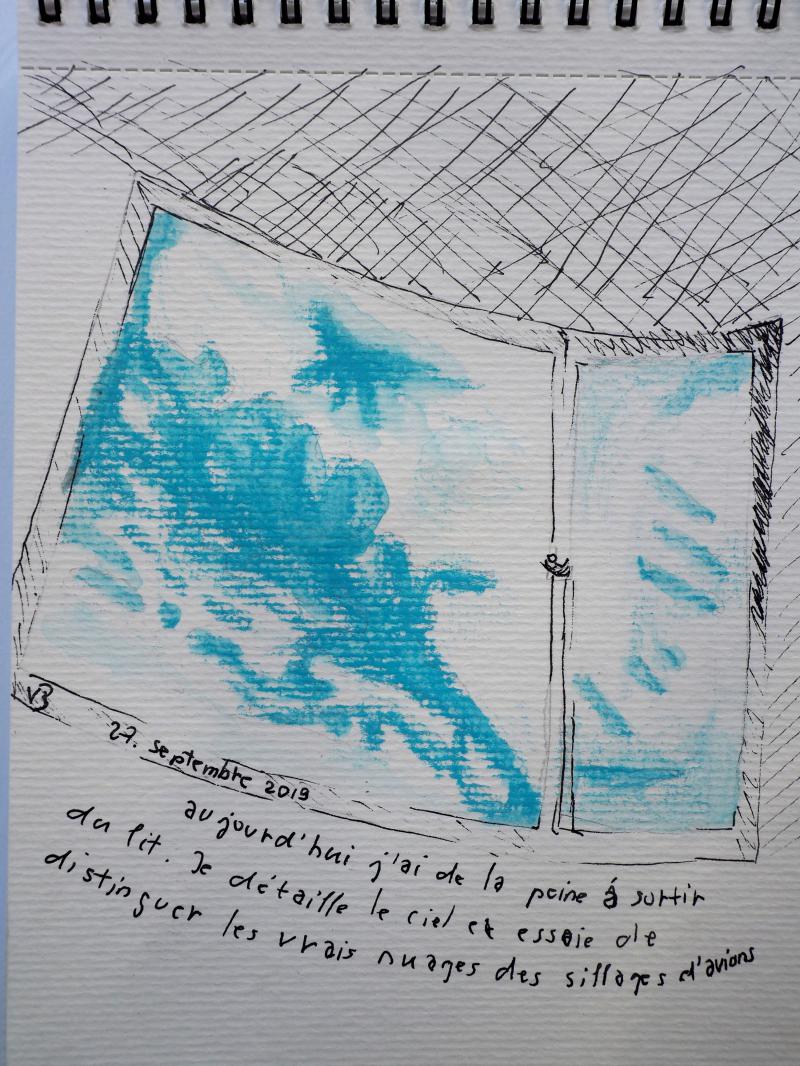 VB
27. septembre 2019
aujourd'hui j'ai de la peine à sortir
du lit. Je détaille le ciel et essaie de
distinguer les vrais nuages des sillages d'avions